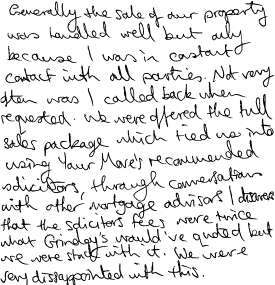 Generally the sale of our property
was handled well but only
because I was in constant
contact with all parties. Not very
often was I called back when
requested. We were offered the full
sales package which tied us into
using Your Move's recommended
solicitors, through conversations
with other mortgage advisors I discovered
that the solicitors fees were twice
what Grindey's would've quoted but
we were stuck with it. We were
very dissappointed with this.